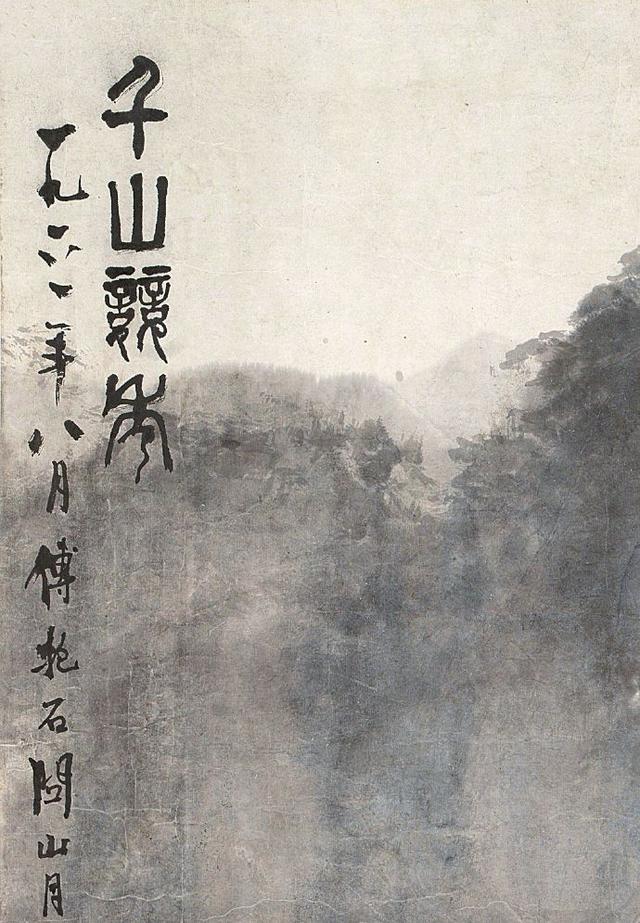 千山競秀
一九六一年八月傅抱石關山月